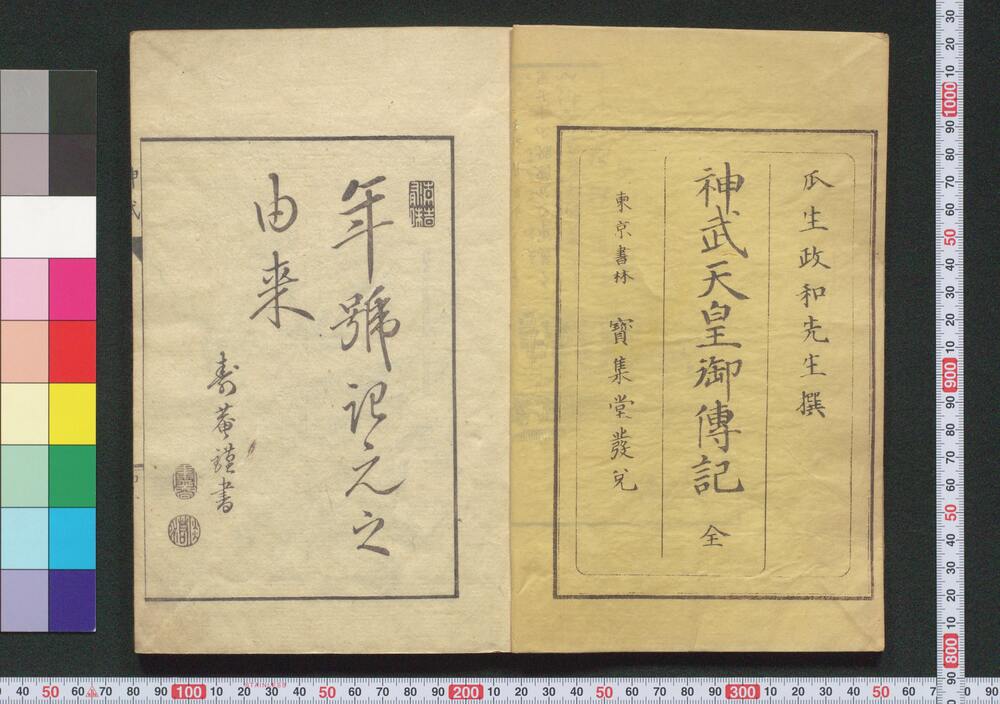 瓜生政和先生撰
神武天皇御傳記 全
東京書林 寳集堂發兌
年號記元之
由来
壽菴謹書